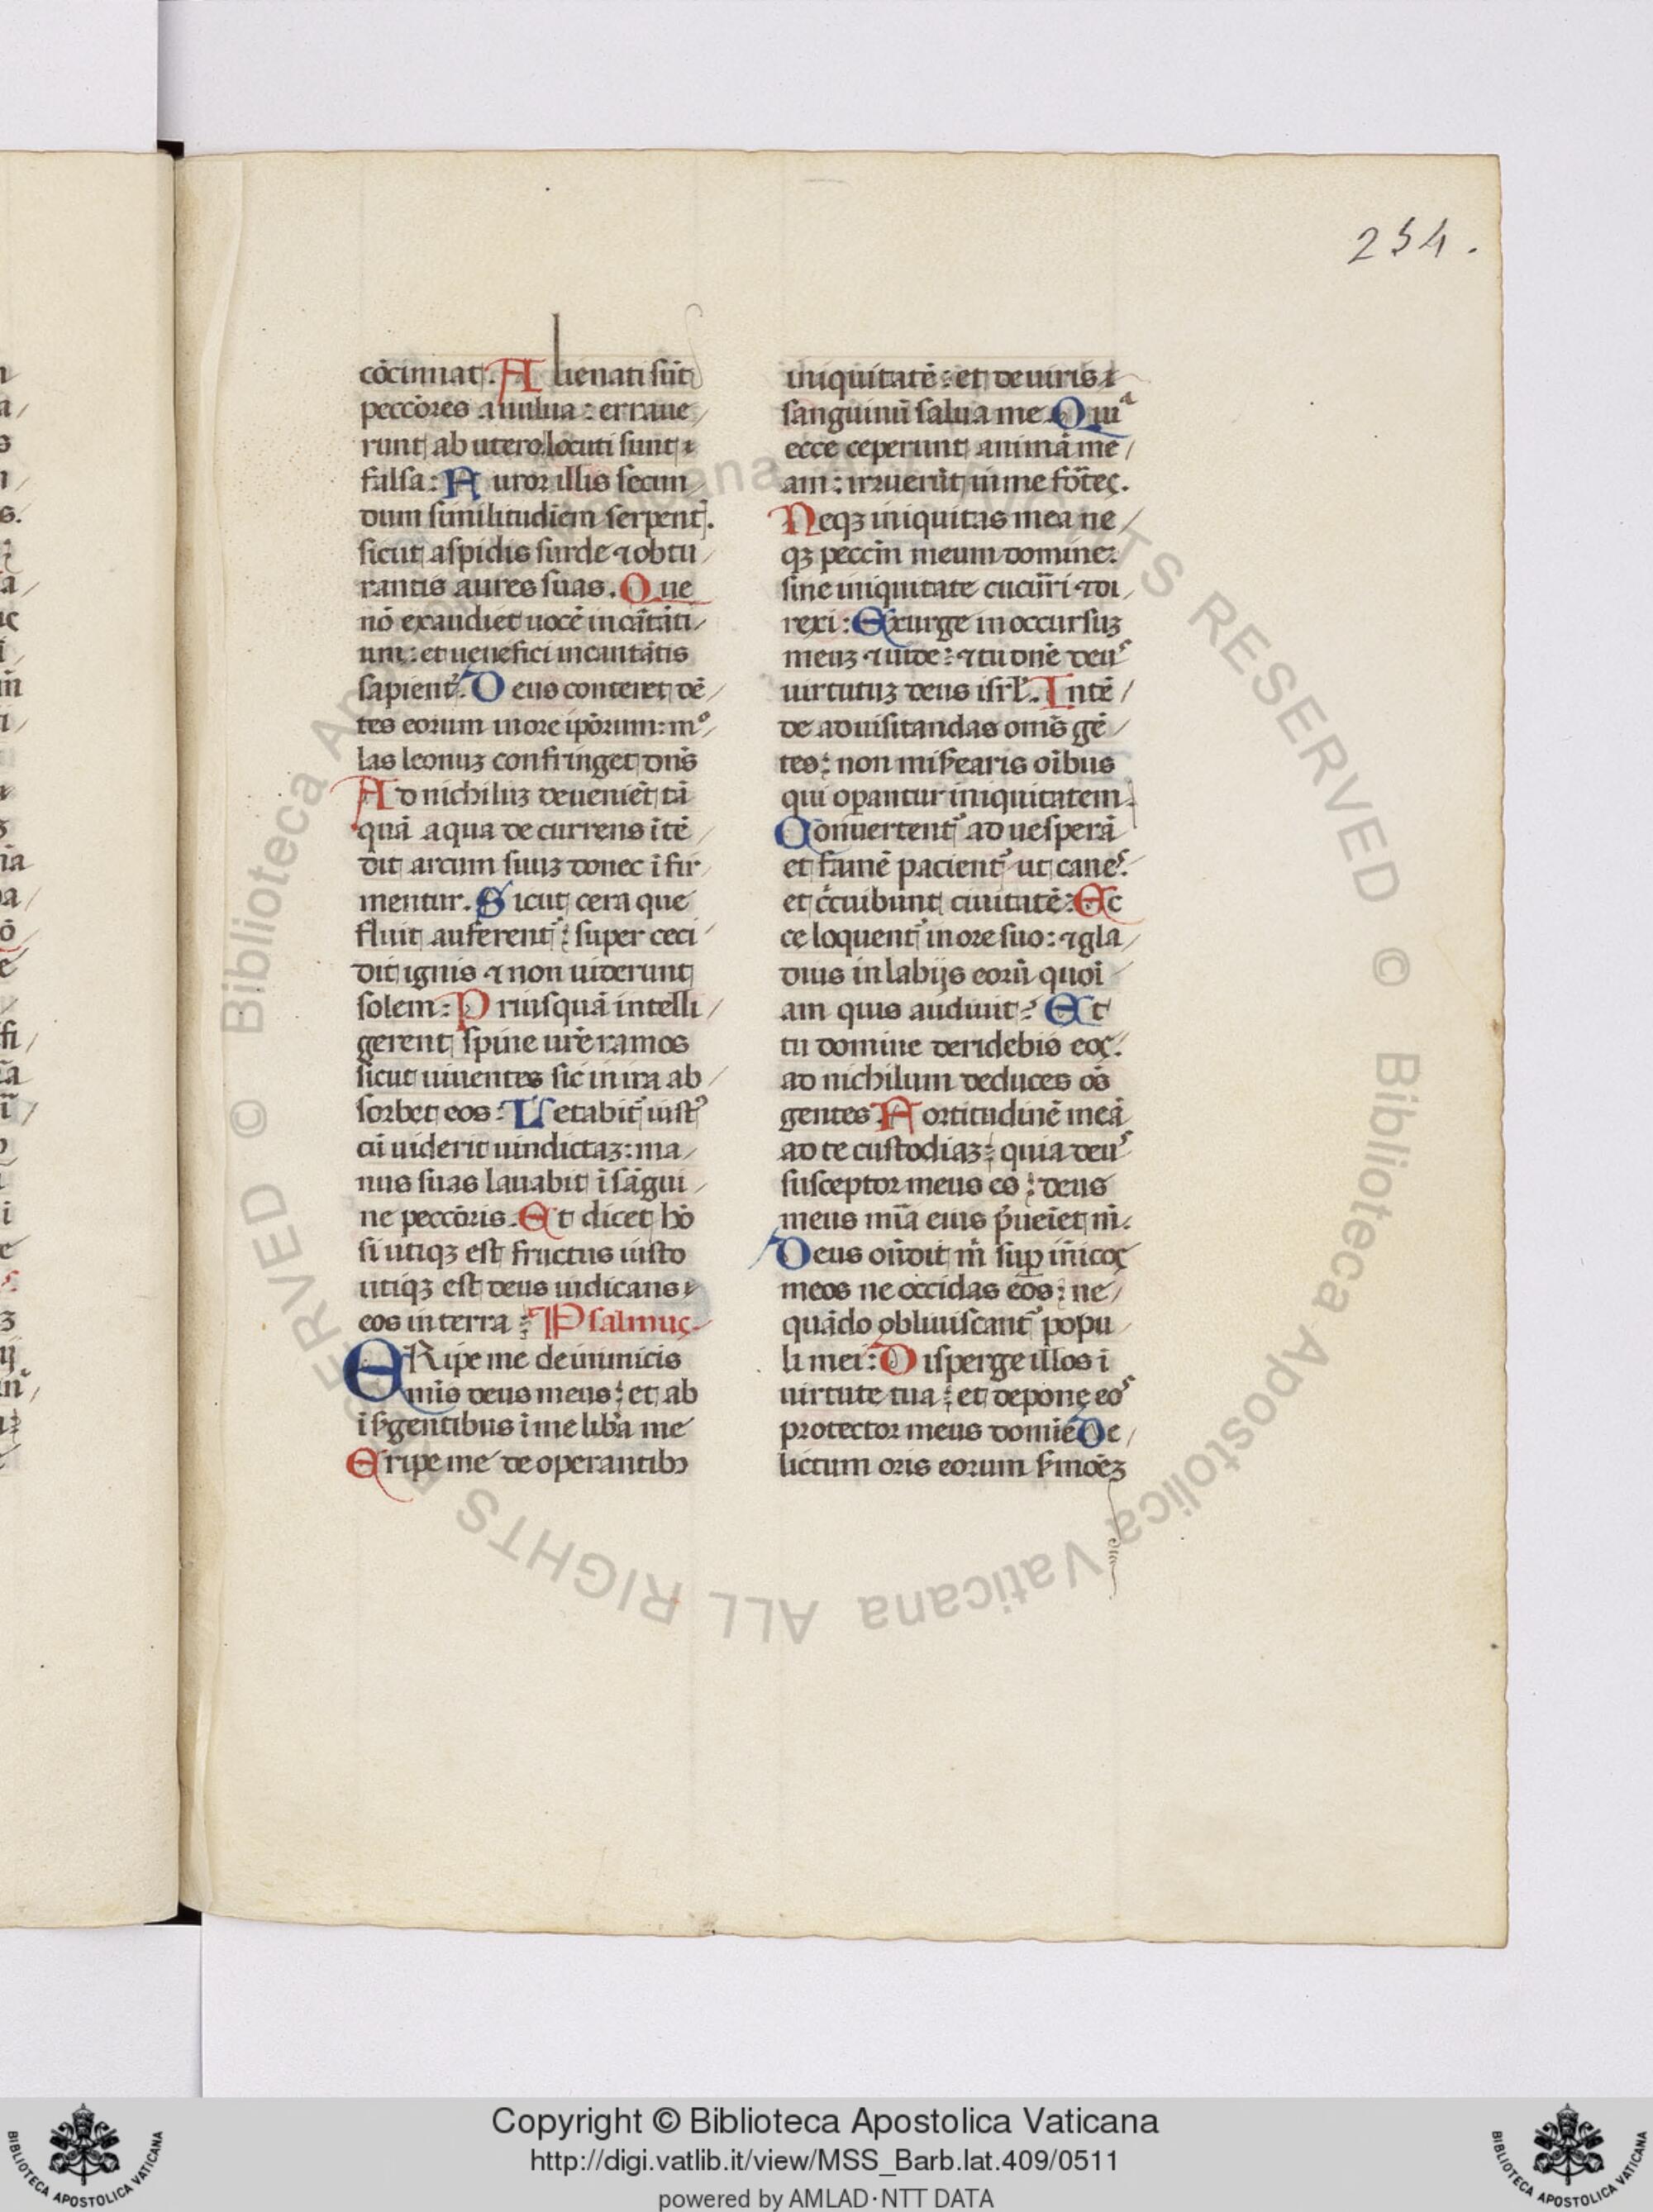 254.
cōcinnat. Alienati sūt
peccōres a uulua : erraue
runt ab utero locuti sunt
falsa : Furor illis secun
dum similitudiem serpent̄.
sicut aspidis surde ⁊ obtu
rantis aures suas. Que
nō exaudiet uocē incātāti
um : et uenefici incantātis
sapient̄. Deus conteret dē
tes eorum in ore ipōrum : mo
las leonuꝫ confringet dn̄s
Ad nichiluꝫ deueniēt tā
quā aqua decurrens ītē
dit arcum suuꝫ donec īfir
mentur. Sicut cera que
fluit auferent̄ : super ceci
dit ignis ⁊ non uiderunt
solem : Priusquā intelli
gerent spine ur̄e ramos
sicut uiuentes sic in ira ab
sorbet eos : Letabit̄ iustꝰ
cū uiderit uindictaꝫ : ma
nus suas lauabit ī sāgui
ne peccōris. Et dicet hō
si utiqꝫ est fructus iusto
utiqꝫ est deus iudicans
eos in terra : Psalmus
ERipe me de inimicis
mīs deus meus : et ab
īsꝛgentibus ī me lib̄a me
Eripe me de operantibꝫ
iniquitatē : et de uiris
sanguinū salua me. Quiᵃ
ecce ceperunt animā me
am : irruerūt in me fōtes.
Neqꝫ iniquitas mea ne
qꝫ pecc̄m meum domine :
sine iniquitate cucur̄i ⁊ di
rexi : Exurge in occursuꝫ
meuꝫ ⁊ uide : ⁊ tu dn̄e deus
uirtutuꝫ deus isrl̄. Intē
de ad uisitandas omīs gē
tes : non mis̄earis oībus
qui oꝑantur iniquitatem.
Conuertent̄ ad uesperā
et famē pacient̄ ut canes
et c̄cuibunt ciuitatē : Ec
ce loquent̄ in ore suo : ⁊ gla
dius in labijs eorū quoī
am quis audiuit ? Et
tu domine deridebis eos :
ad nichilum deduces oēs
gentes Fortitudinē meā
ad te custodiaꝫ : quia deus
susceptor meus es : deus
meus mīa eius p̄ueīet m̄.
Deus on̄dit m̄ suꝑ in̄icos
meos ne occidas eos : ne
quādo obliuiscant̄ popu
li mei : Disperge illos ī
uirtute tua : et depone eos
protector meus domīe De
lictum oris eorum s̄moēꝫ
Copyright © Biblioteca Apostolica Vaticana
http://digi.vatlib.it/view/MSS_Barb.lat.409/0511
powered by AMLAD·NTT DATA
© Biblioteca Apostolica Vaticana ALL RIGHTS RESERVED © Biblioteca Apostolica Vaticana ALL RIGHTS RESERVED
BIBLIOTECA APOSTOLICA VATICANA
BIBLIOTECA APOSTOLICA VATICANA